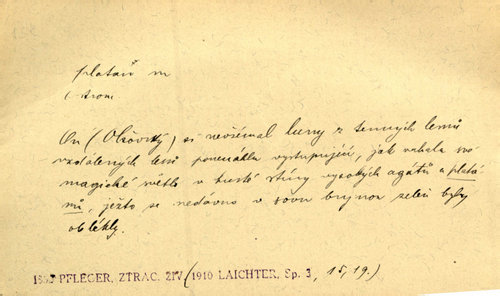 platan m
(strom
On (Obšovský) si nevšímal luny z temných lemů
vzdálených lesů pomalu vystupující, jak vrhala své
magické světlo v husté stíny vysokých agátů a platá-
nů, ježto se nedávno v novou bujnou zeleň byly
oblékly.
PFLEGER, ZTRAC. ŽIV. (1910 LAICHTER, Sp. 3, 15, 19.)